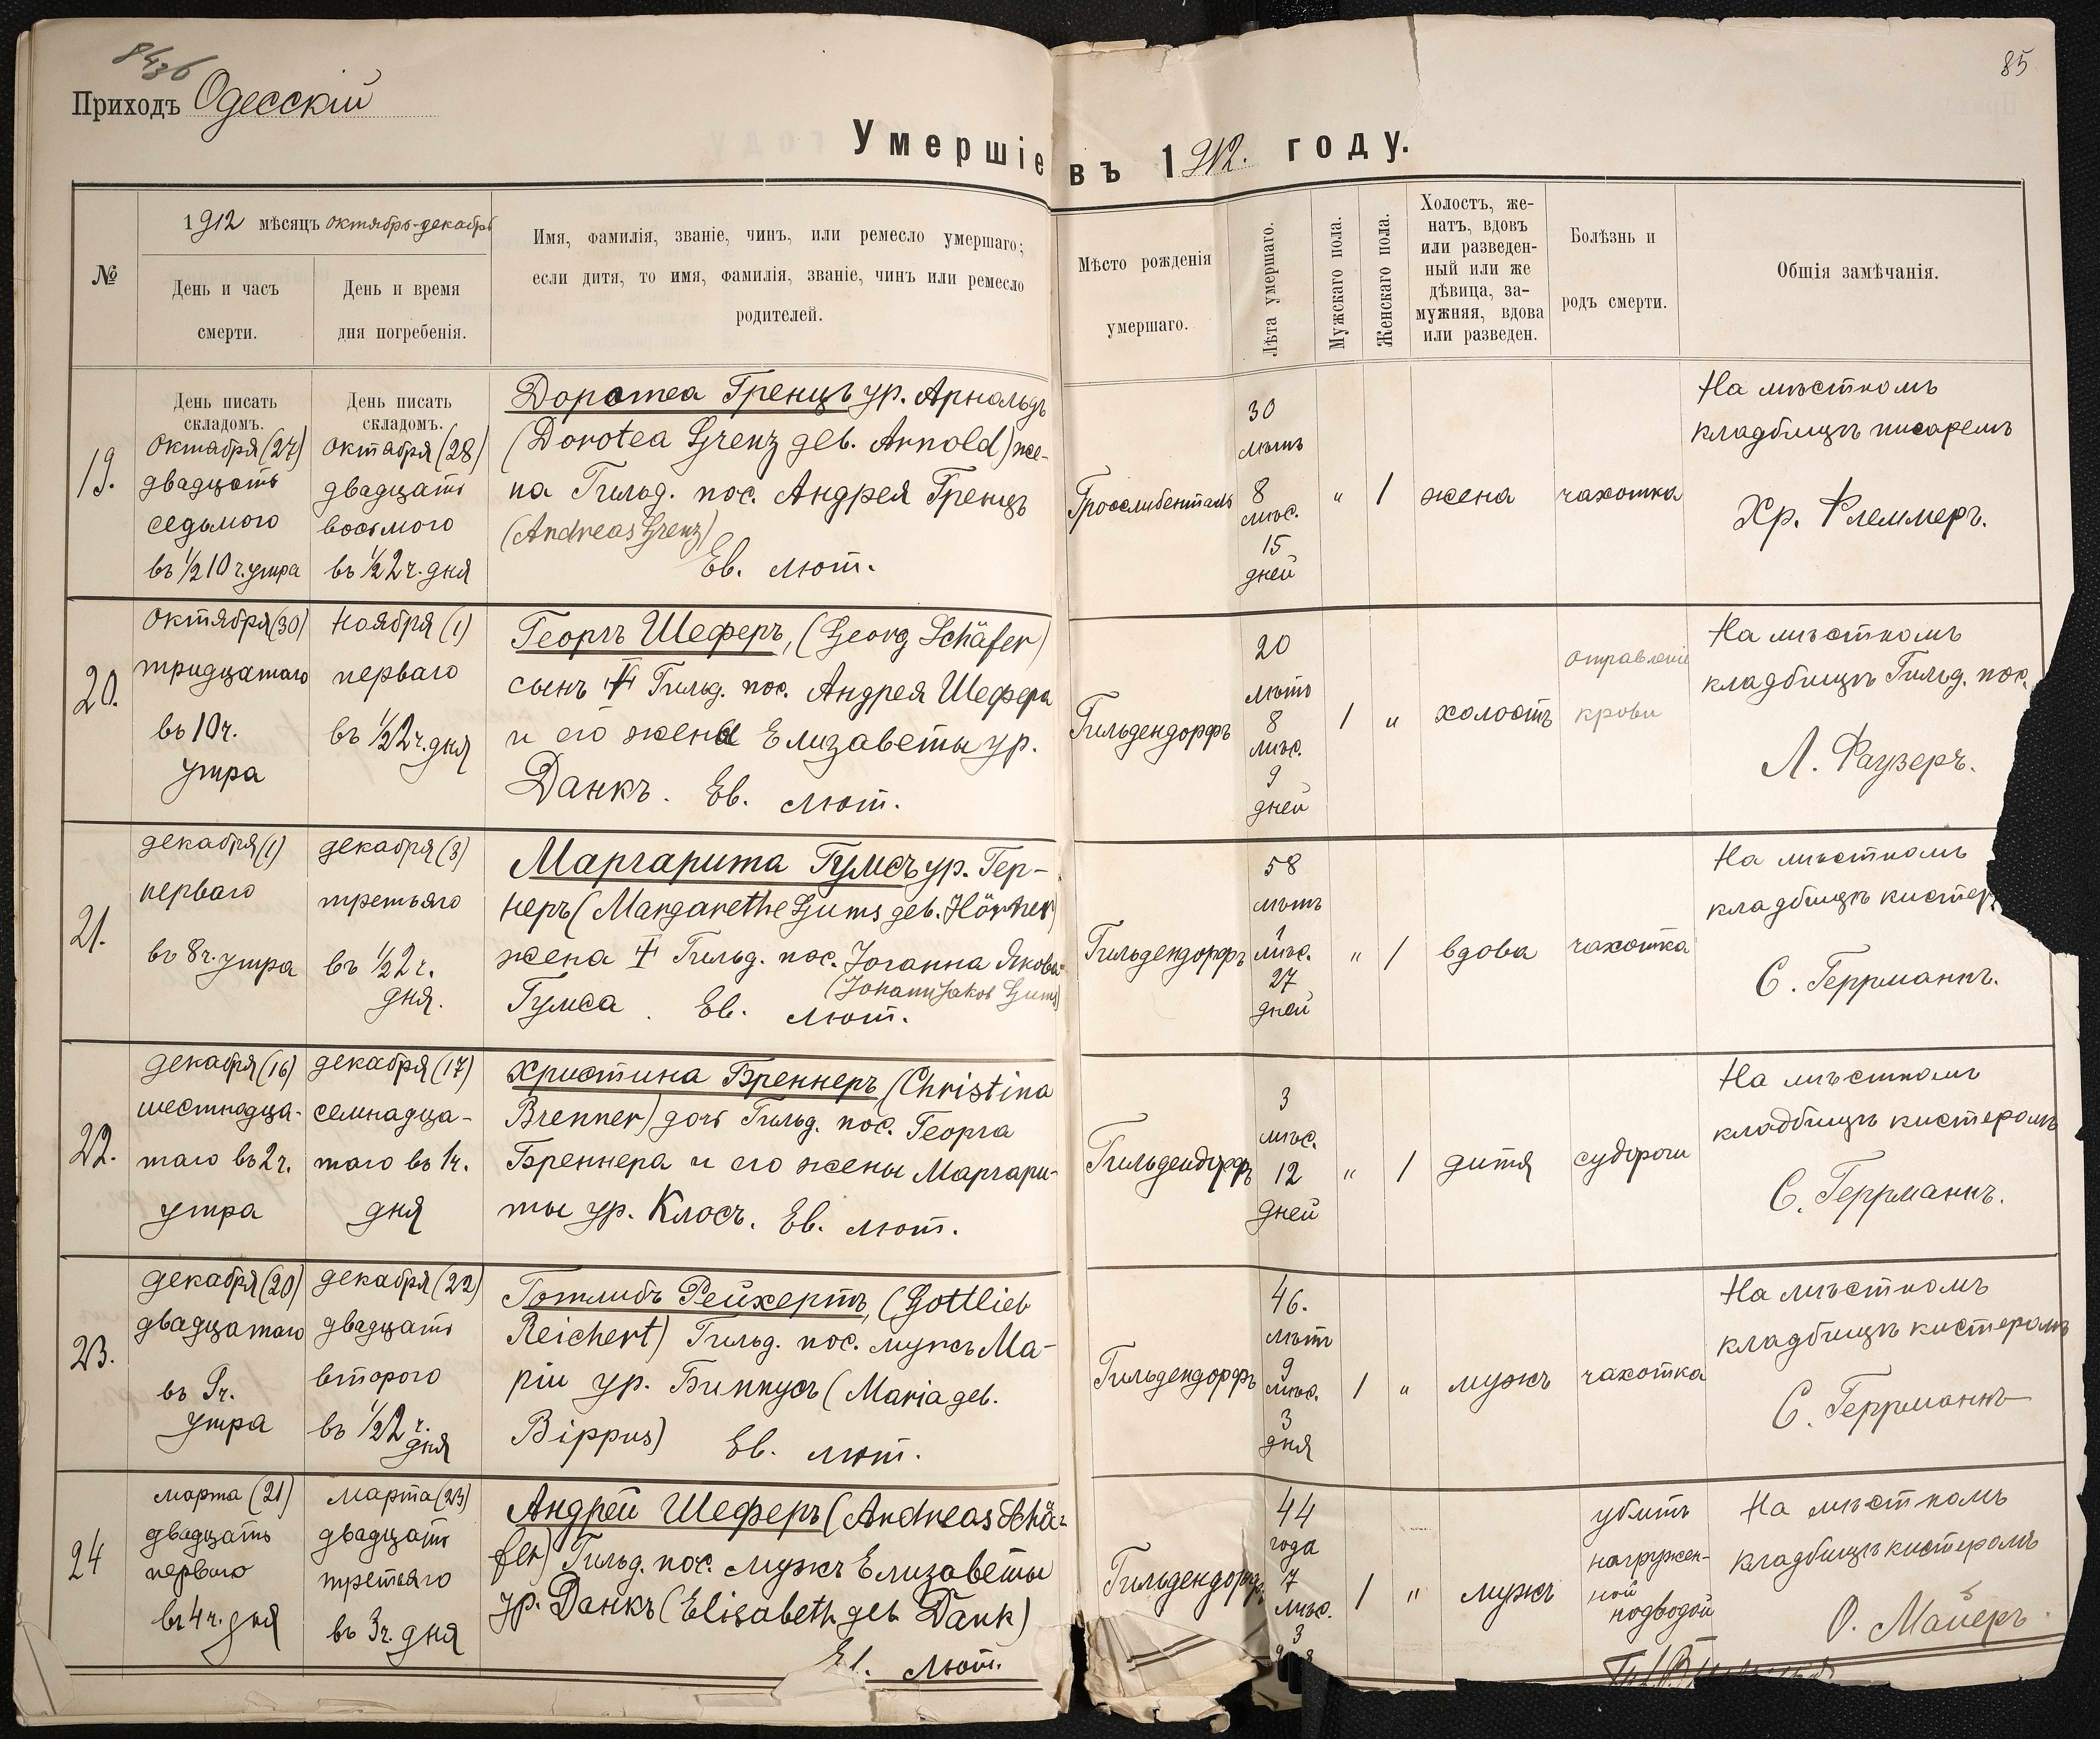 85
Приходъ Одесскій
Умершіе въ 1912. году.
№
1912 мѣсяцъ октябрь-декабрь
День и часъ
смерти.
День и время
дня погребенія.
Имя, фамилія, званіе, чинъ, или ремесло умершаго;
если дитя, то имя, фамилія, званіе, чинъ или ремесло
родителей.
Мѣсто рожденія
умершаго.
Лѣта умершаго.
Мужскаго пола.
Женскаго пола.
Холостъ, же-
натъ, вдовъ
или разведен-
ный или же
дѣвица, за-
мужняя, вдова
или разведен.
Болѣзнь и
родъ смерти.
Общія замѣчанія.
19.
День писать
складомъ.
октября (27)
двадцать
седьмого
въ ½ 10 ч. утра
День писать
складомъ.
октября (28)
двадцать
восьмого
въ ½ 2 ч. дня
Доротеа Гренцъ ур. Арнольдъ
(Dorotea Grenz geb. Arnold) же-
на Гильд. пос. Андрея Гренцъ
(Andreas Grenz)
Ев. лют.
Гросслибенталь
30
лѣтъ
8
мѣс.
15
дней
"
1
жена
чахотка
На мѣстномъ
кладбищѣ писаремъ
Хр. Флеммеръ.
20.
октября (30)
тридцатаго
въ 10 ч.
утра
ноября (1)
перваго
въ ½ 2 ч. дня
Георгъ Шеферъ, (Georg Schäfer)
сынъ ‡ Гильд. пос. Андрея Шефера
и его жены Елизаветы ур.
Данкъ. Ев. лют.
Гильдендорфъ
20
лѣтъ
8
мѣс.
9
дней
1
"
холостъ
отравленіе
крови
На мѣстномъ
кладбищѣ Гильд. пос.
Л. Фаузеръ.
21.
декабря (1)
перваго
въ 8 ч. утра
декабря (3)
третьяго
въ ½ 2 ч.
дня.
Маргарита Гумсъ ур. Гер-
неръ (Margarethe Gums geb. Hörner)
жена ‡ Гильд. пос. Іоганна Якова
(Johann Jakob Gums)
Гумса. Ев. лют.
Гильдендорфъ
58
лѣтъ
1
мѣс.
27
дней
"
1
вдова
чахотка
На мѣстномъ
кладбищѣ кистер
С. Геррманнъ.
22.
декабря (16)
шестнадца-
таго въ 2 ч.
утра
декабря (17)
семнадца-
таго въ 1 ч.
дня
Христина Бреннеръ (Christina
Brenner) дочь Гильд. пос. Георга
Бреннера и его жены Маргари-
ты ур. Клосъ. Ев. лют.
Гильдендорфъ
3
мѣс.
12
дней
"
1
дитя
судороги
На мѣстномъ
кладбищѣ кистеромъ
С. Геррманнъ.
23.
декабря (20)
двадцатаго
въ 9 ч.
утра
декабря (22)
двадцать
второго
въ ½ 2 ч.
дня
Готлибъ Рейхертъ, (Gottlieb
Reichert) Гильд. пос. мужъ Ма-
ріи ур. Биппусъ (Maria geb.
Bippus) Ев. лют.
Гильдендорфъ
46.
лѣтъ
9
мѣс.
3
дня
1
"
мужъ
чахотка
На мѣстномъ
кладбищѣ кистеромъ
С. Геррманнъ
24
марта (21)
двадцать
перваго
въ 4 ч. дня
марта (23)
двадцать
третьяго
въ 3 ч. дня
Андрей Шеферъ (Andreas Schä-
fer) Гильд. пос. мужъ Елизаветы
ур. Данкъ (Elisabeth geb. Dank)
Ев. лют.
Гильдендорфъ
44
года
7
мѣс.
3
1
"
мужъ
убитъ
нагружен-
ной
подводой
На мѣстномъ
кладбищѣ кистеромъ
О. Майеръ.